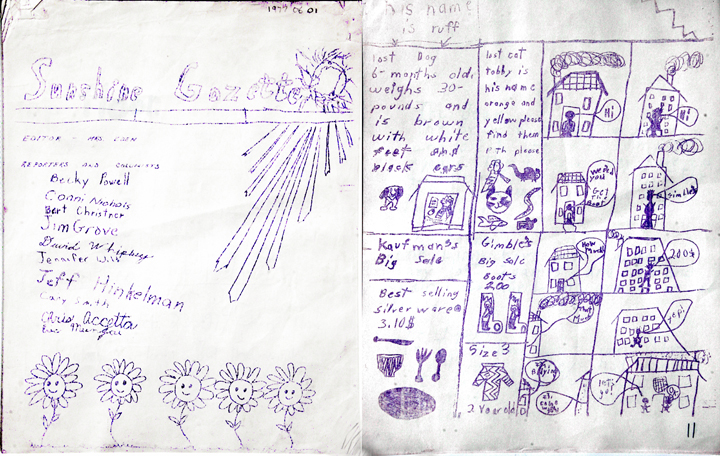 1979 06 01
Sunshine Gazette
EDITOR MRS. EDEN
REPORTERS AND COLUMISTS
Becky Powell
Conni Nichols
Bert Christner
Jim Grove
David Whipkey
Jennifer
Jeff Hinkelman
Cary Smith
Chris Accetta
his name
is ruff
lost Dog
6-months old,
weighs 30-
pounds and
is brown
with white
feet and
black ears
lost cat
tobby is
his name
orange and
yellow please
find them
both please
Kaufman's
Big Sale
Best selling
silverware
3.10$
Gimble's
Big Sale
Boots
2.00
Size 3
2 year old
Hi
Hi
Where
you
Get
Boots
Gimbles
How
Much
200$
That
Much
yep!
Buying
let's
go!
11